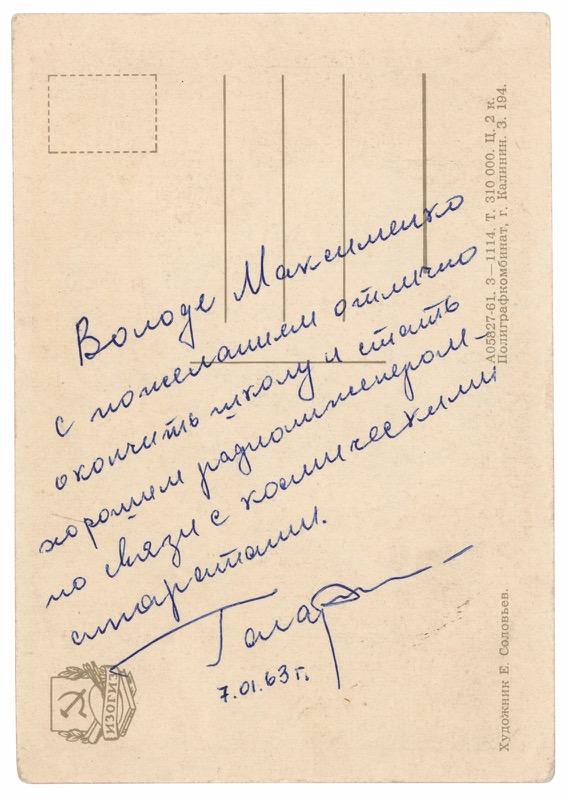 Володе Максименко
с пожеланием отлично
окончить школу и стать
хорошим радиоинженером-
по связи с космическими
аппаратами.
Гагарин
7.01.63 г.
ИЗОГИЗ
А05827-61. З—1114. Т. 310 000. Ц. 2 к.
Полиграфкомбинат, г. Калинин. З. 194.
Художник Е. Соловьев.